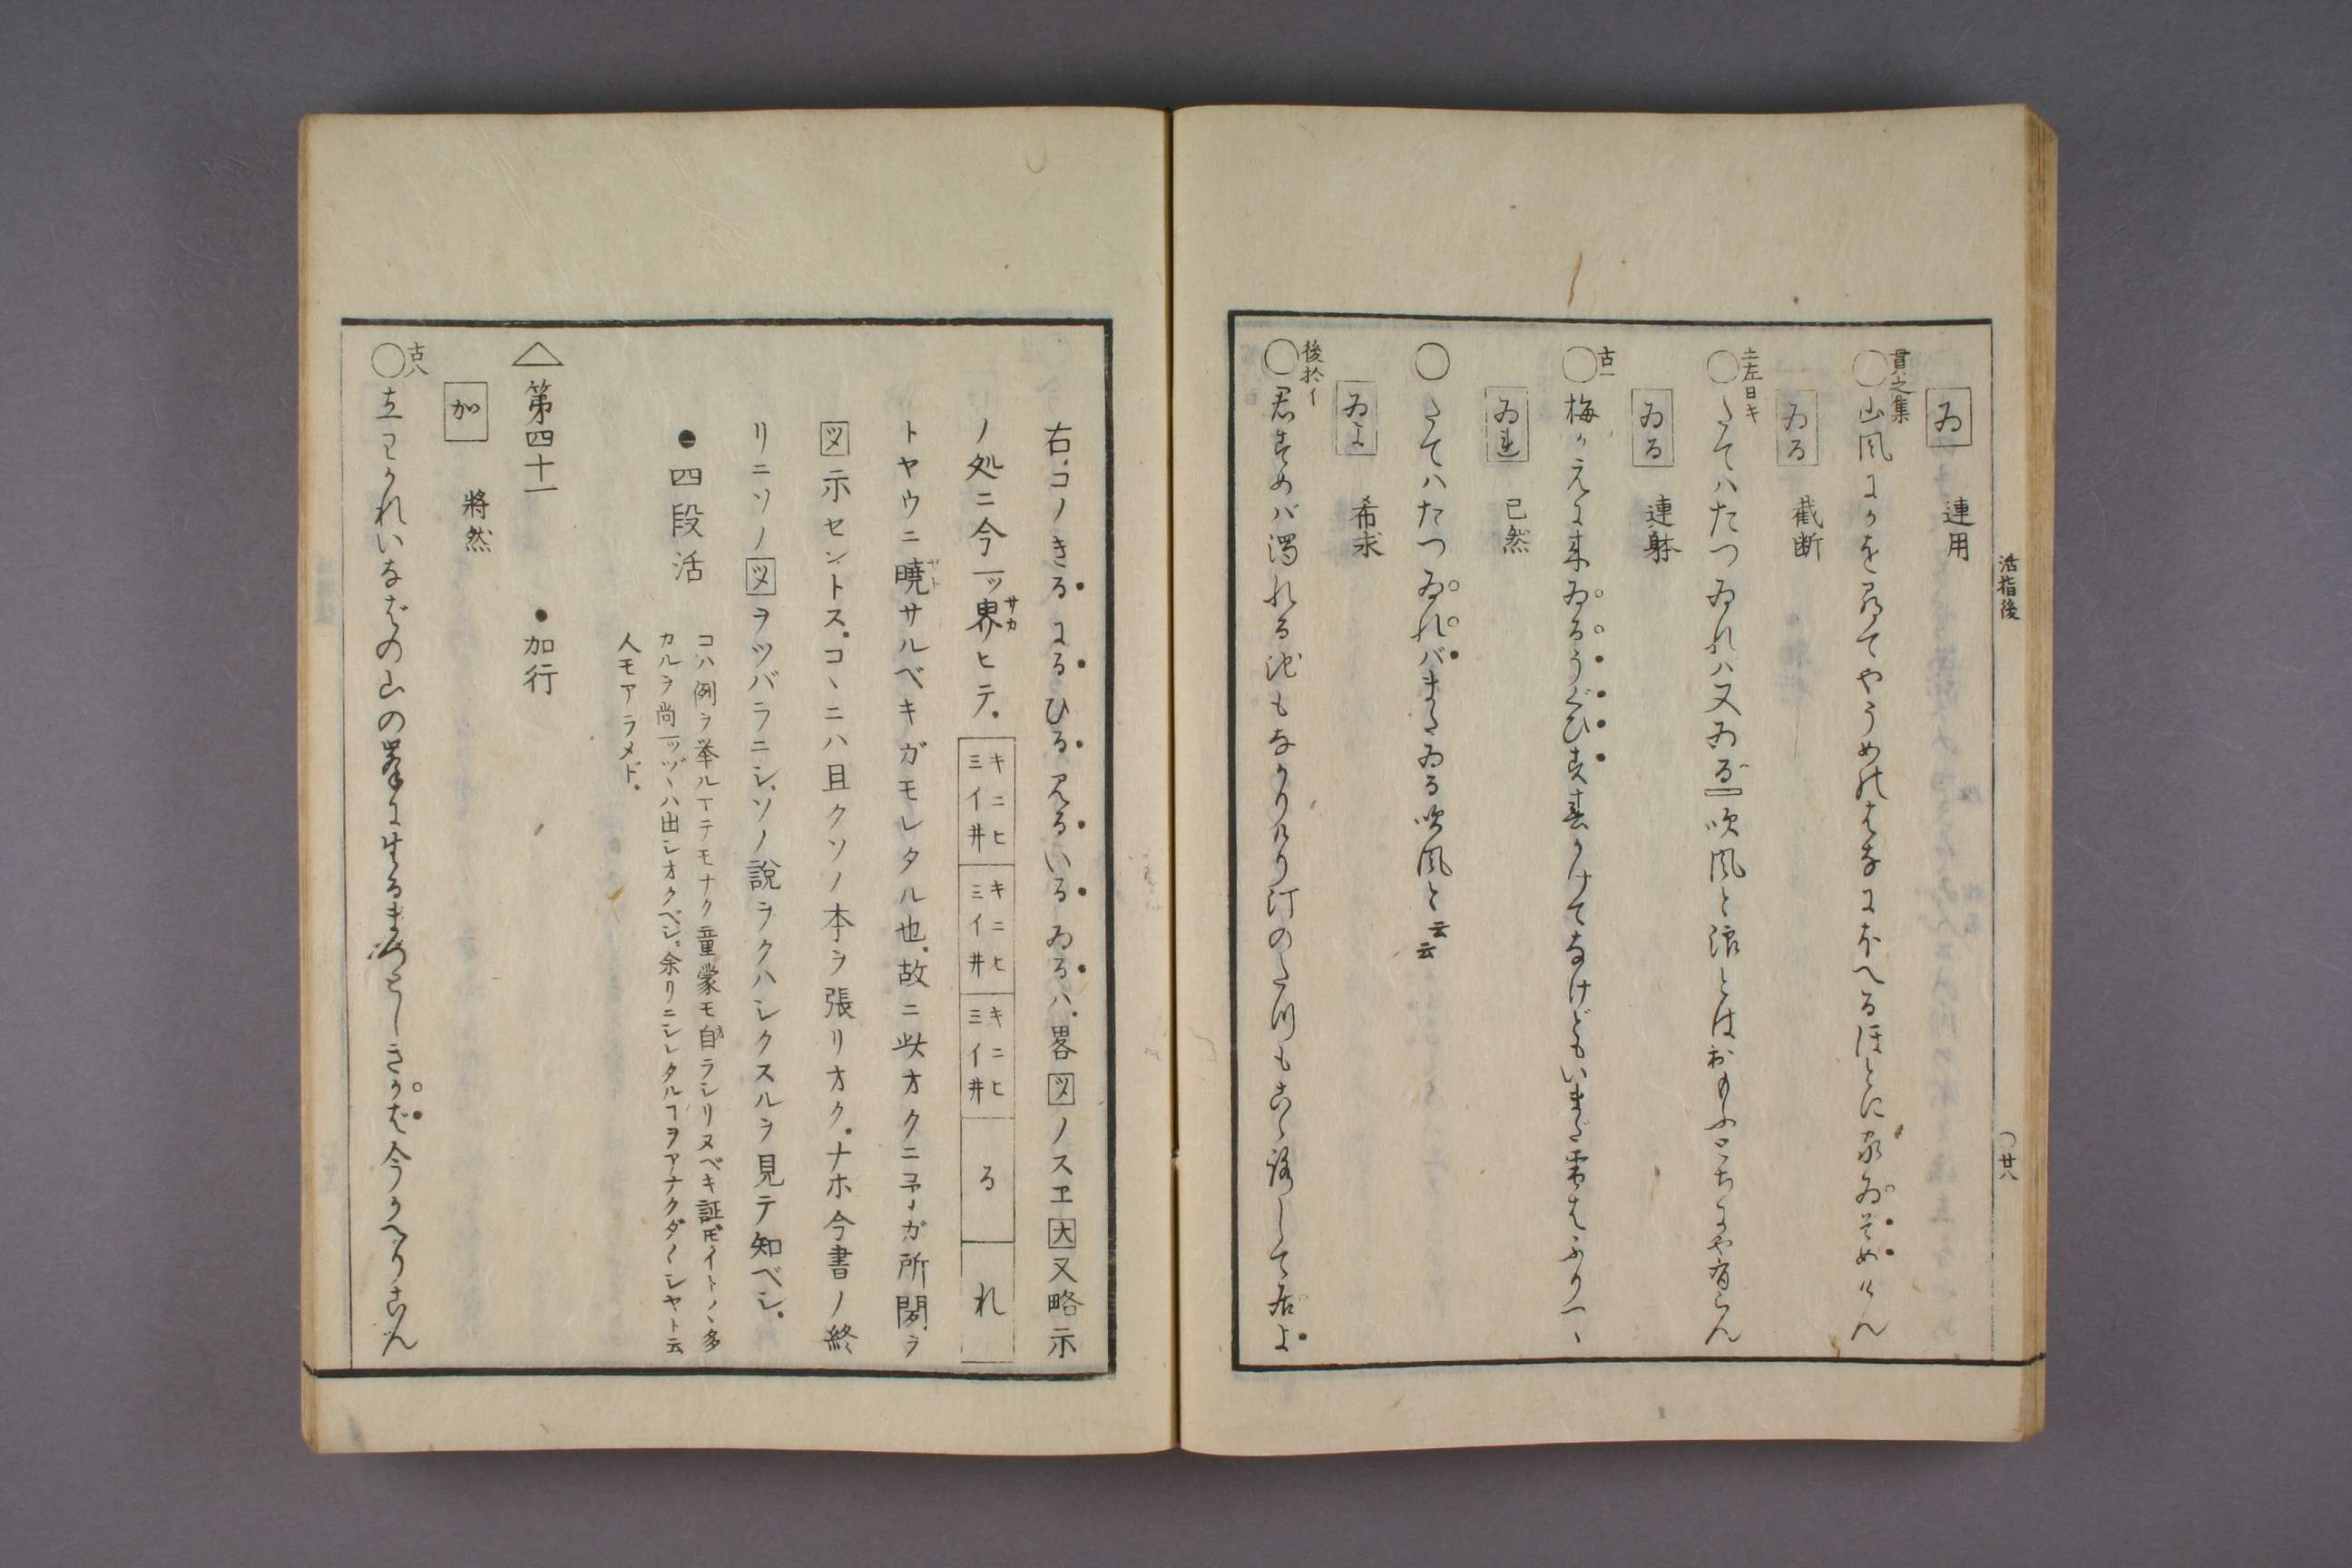 活指後
〇廿八
ゐ 連用
貫之集
〇山風にかを尋てやうめのはなにほへるほとに家ゐそめけん
ゐる 截断
土左日キ
〇たてハたつゐれハ又ゐる吹風と浪とはおもふとちにや有らん
ゐる 連躰
古一
〇梅かえに来ゐるうぐひす春かけてなけどもいまだ雪はふりつゝ
ゐれ 已然
〇たてハたつゐれバまたゐる吹風と云云
ゐよ 希求
後拾イ
〇君すめバ濁れる池もなかりけり汀のたづも心して居よ
右、コノきるにるひるみるいるゐるハ、畧図ノスヱ大又略示
ノ処ニ今一ッ界ヒテ、
サカ
キニヒミイ井
キニヒミイ井
キニヒミイ井
る
れ
トヤウニ暁サルベキガモレタル也、故ニ此オクニ予ガ所関ヲ
サト
図示セントス。コヽニハ且クソノ本ヲ張リオク。ナホ今書ノ終
リニソノ図ヲツバラニシ、ソノ説ヲクハシクスルヲ見テ知ベシ。
●四段活
コハ例ヲ挙ルマテモナク童蒙モ自ラシリヌベキ証𪜈イトノヽ多
カルヲ尚一ッヅヽハ出シオクベシ、余リニシレタルヿヲアナクダ〱シヤト云
人モアラメド、
△第四十一 ●加行
加 将然
古八
〇立わかれいなばの山の峯に生るまつとしきかば今かへりこん